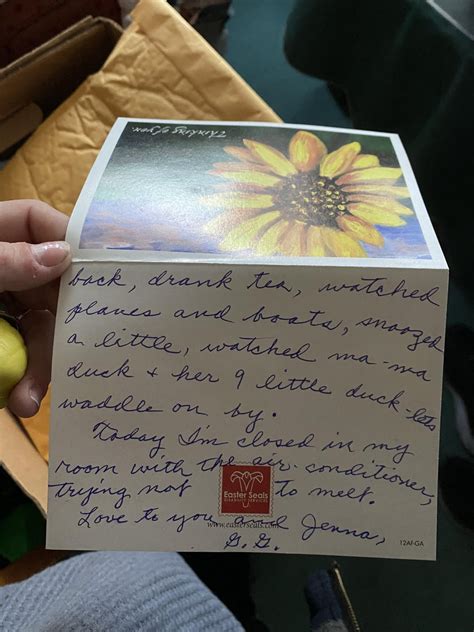 Thinking of You
back, drank tea, watched
planes and boats, snoozed
a little, watched ma-ma
duck + her 9 little duck-lets
waddle on by.
Today I'm closed in my
room with the air-conditioner,
trying not to melt.
Easter Seals
DISABILITY SERVICES
www.easterseals.com
Love to you and Jenna,
G.G.
12AF-GA